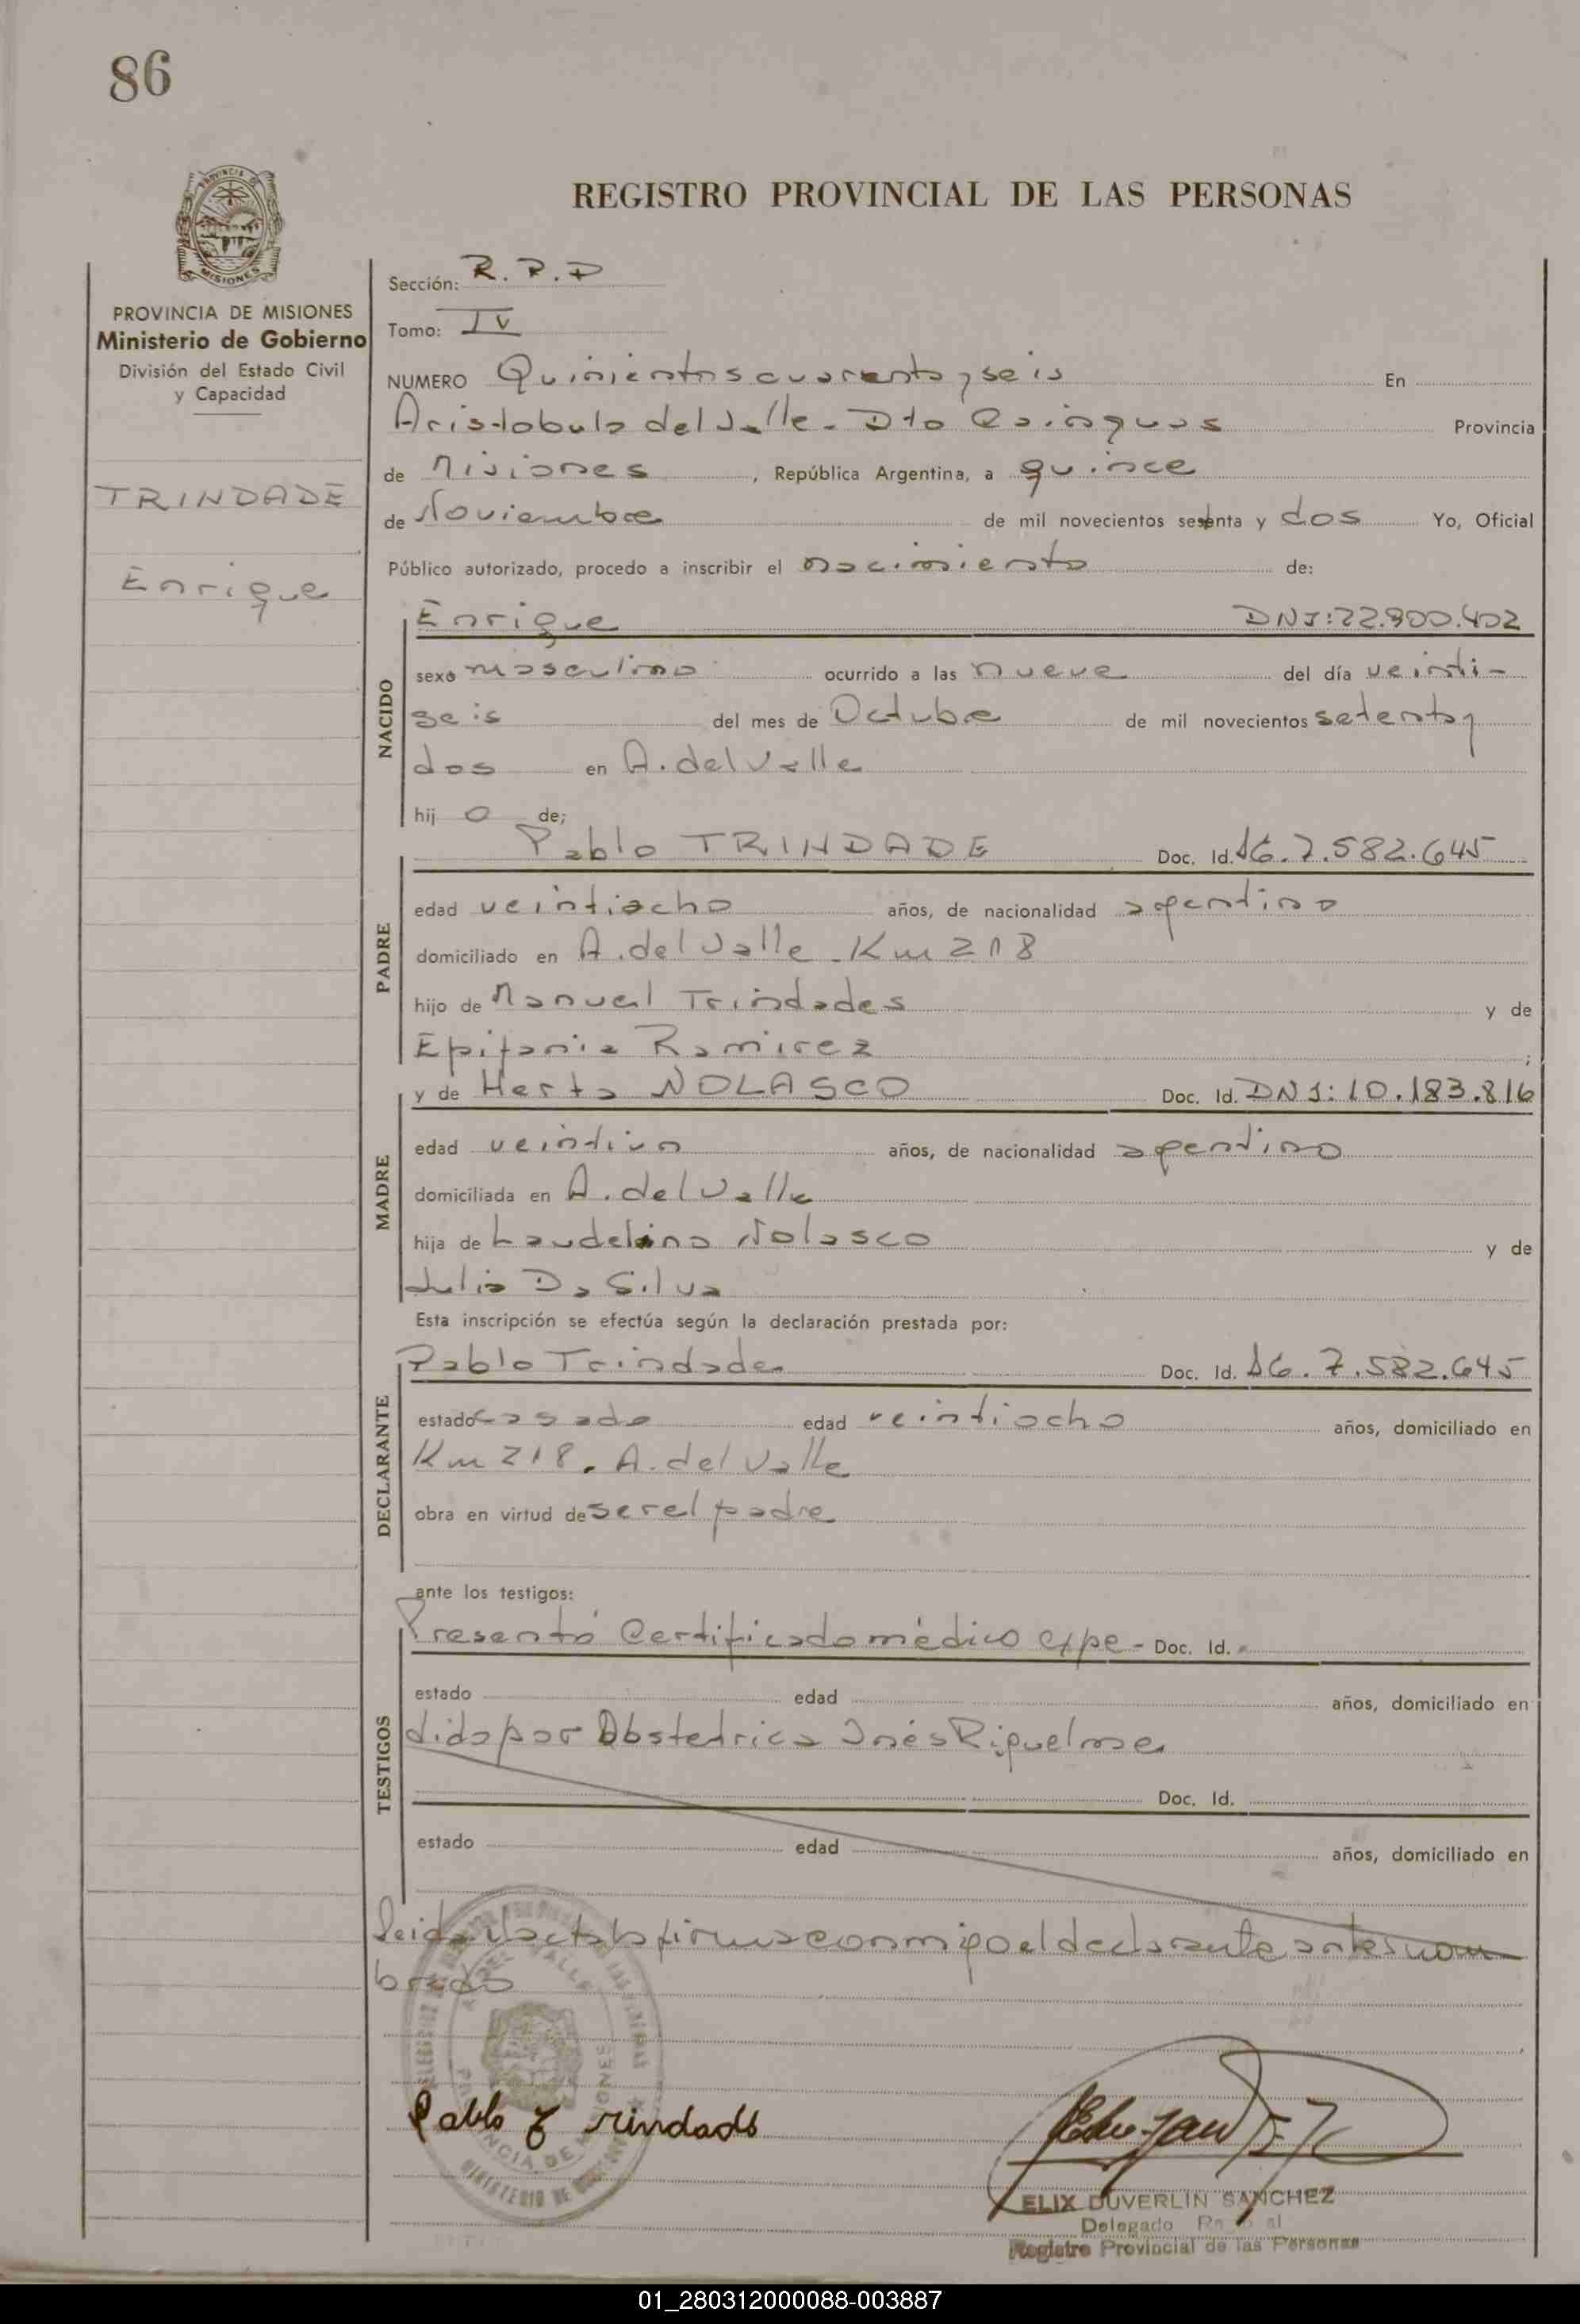 86
REGISTRO PROVINCIAL DE LAS PERSONAS
PROVINCIA DE MISIONES
Ministerio de Gobierno
División del Estado Civil
y Capacidad
TRINDADE
Enrique
Sección: R.P.D
Tomo: IV
NUMERO Quinientos cuarenta y seis En
Aristobulo del Valle - Dto Cainguas Provincia
de Misiones, República Argentina, a quince
de Noviembre de mil novecientos setenta y dos Yo, Oficial
Público autorizado, procedo a inscribir el nacimiento de:
NACIDO
Enrique DNI: 22.900.402
sexo masculino ocurrido a las nueve del día veinti-
seis del mes de Octubre de mil novecientos setenta y
dos en A. del Valle
hijo de;
PADRE
Pablo TRINDADE Doc. Id. 7.582.645
edad veintiocho años, de nacionalidad argentino
domiciliado en A. del Valle - Km 218
hijo de Manuel Trindades y de
Epifania Ramirez ;
MADRE
y de Herta NOLASCO Doc. Id. DNI: 10.183.816
edad veintiun años, de nacionalidad argentina
domiciliada en A. del Valle
hija de Laudelino Nolasco y de
Julia Da Silva
Esta inscripción se efectúa según la declaración prestada por:
DECLARANTE
Pablo Trindade Doc. Id. 7.582.645
estado casado edad veintiocho años, domiciliado en
Km 218. A. del Valle
obra en virtud de ser el padre
ante los testigos:
TESTIGOS
Presentó Certificado médico expe- Doc. Id.
estado edad años, domiciliado en
dido por Obstetrica Inés Riquelme
Doc. Id.
estado edad años, domiciliado en
Leida el acta la firma conmigo el declarante antes nom
brado
Pablo Trindade
ELIX DUVERLIN SANCHEZ
Delegado
Registro Provincial de las Personas
01_280312000088-003887